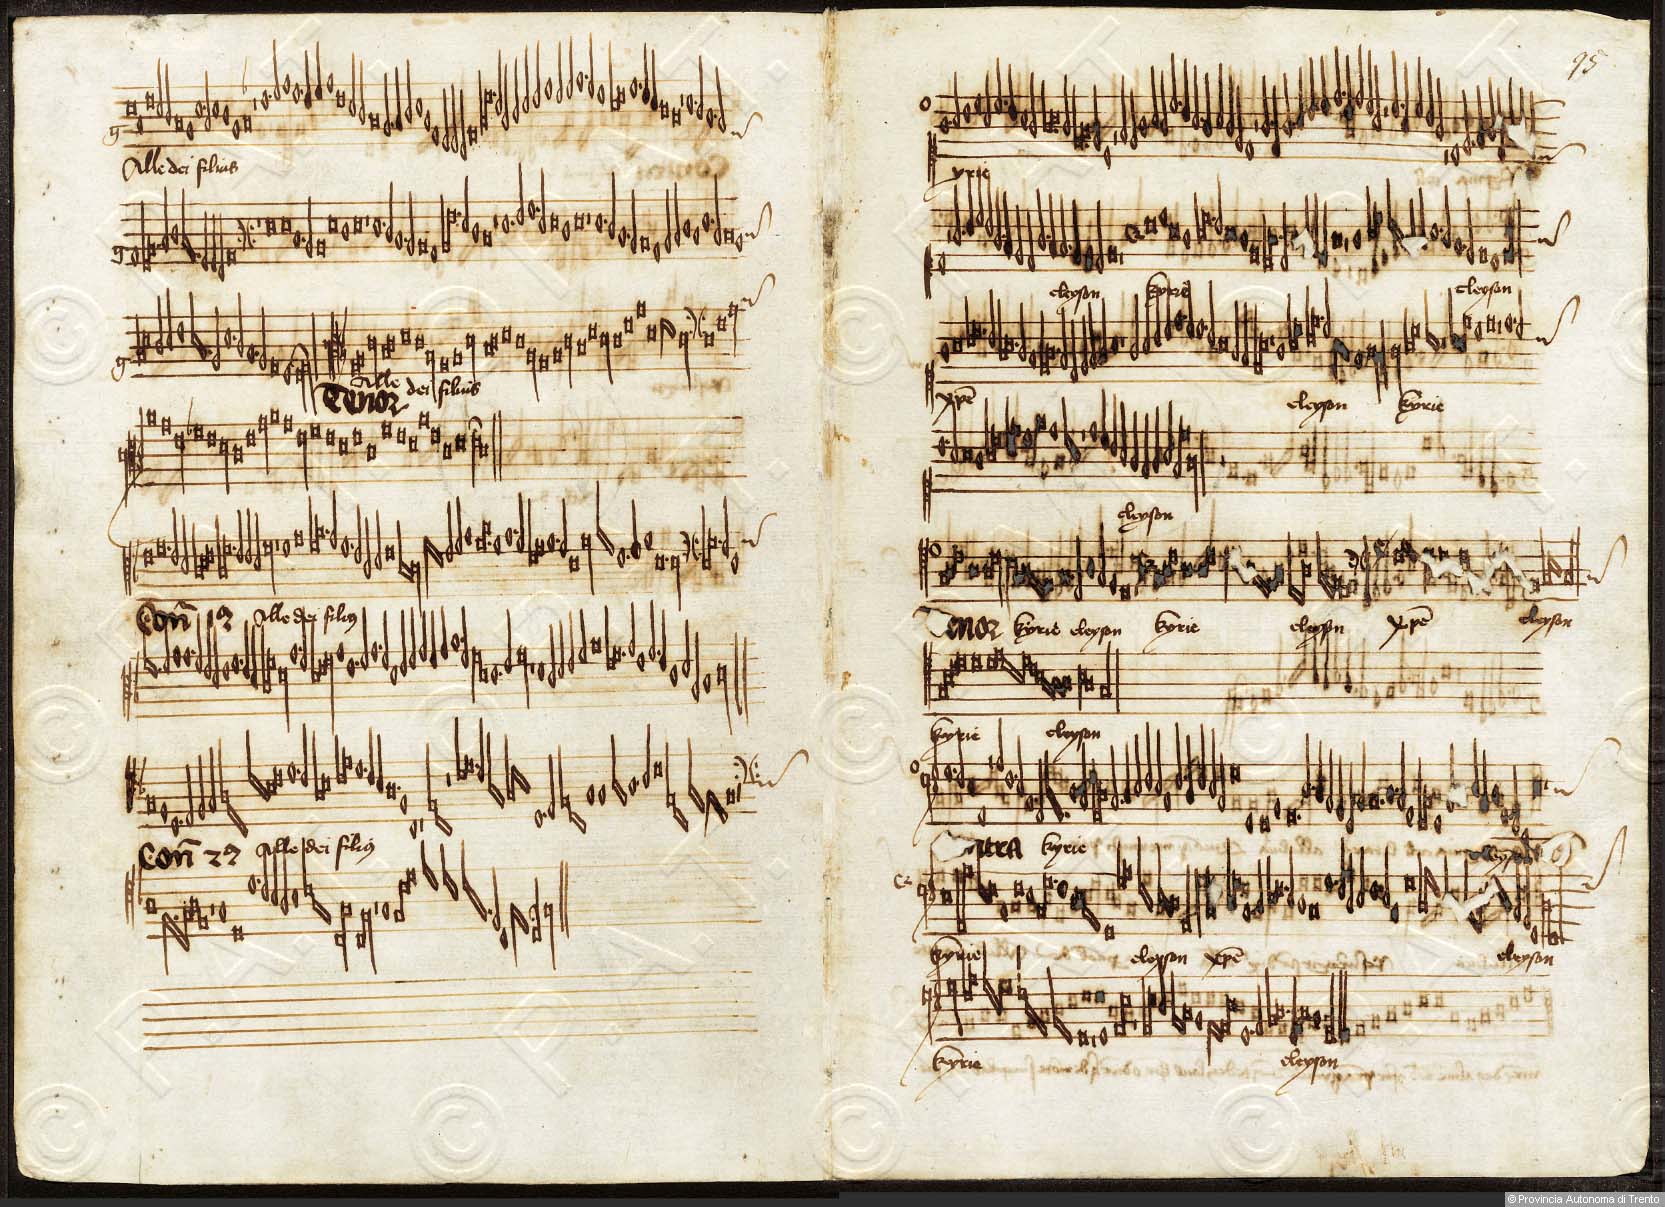 Alle dei filius
Alle dei filius
Tenor
Con 1us Alle dei filius
Con 2us Alle dei filius
95
yrie
eleyson kyrie eleyson
xpe eleyson kyrie
eleyson
enor kyrie eleyson kyrie eleyson xpe eleyson
kyrie eleyson
ntra kyrie eleyson
kyrie eleyson xpe eleyson
kyrie eleyson
© Provincia Autonoma di Trento